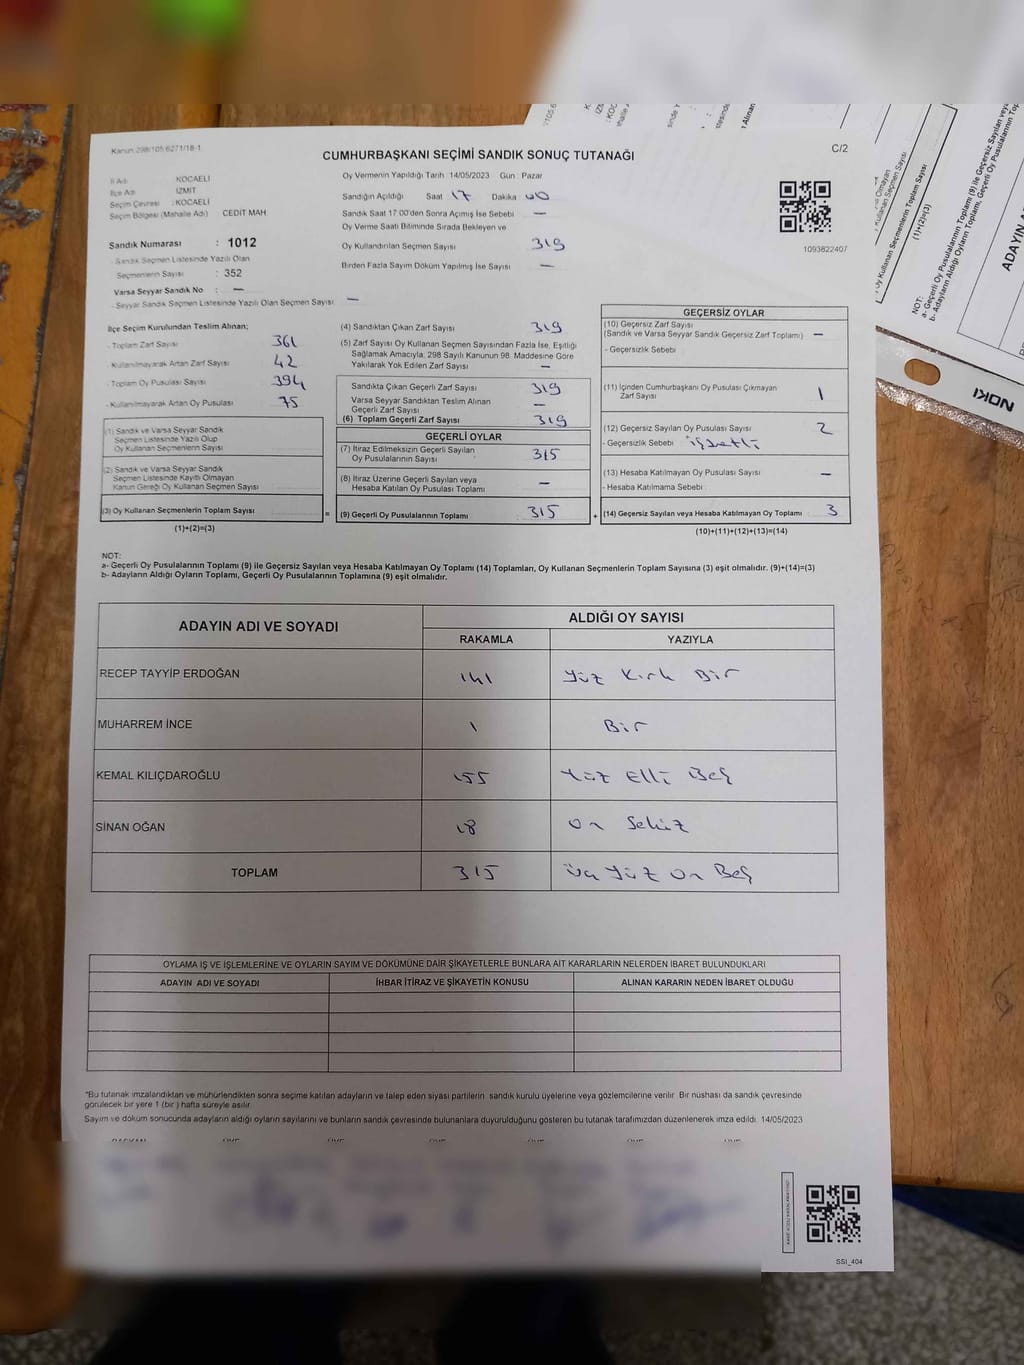 Kanun 298/105,6271/18-1
CUMHURBAŞKANI SEÇİMİ SANDIK SONUÇ TUTANAĞI
C/2
İl Adı : KOCAELİ
İlçe Adı : İZMİT
Seçim Çevresi : KOCAELİ
Seçim Bölgesi (Mahalle Adı) CEDİT MAH
Sandık Numarası : 1012
Sandık Seçmen Listesinde Yazılı Olan
Seçmenlerin Sayısı : 352
Varsa Seyyar Sandık No : —
- Seyyar Sandık Seçmen Listesinde Yazılı Olan Seçmen Sayısı : —
Oy Vermenin Yapıldığı Tarih :14/05/2023 Gün : Pazar
Sandığın Açıldığı Saat 17 Dakika 00
Sandık Saat 17:00'den Sonra Açılmış İse Sebebi —
Oy Verme Saati Bitiminde Sırada Bekleyen ve
Oy Kullandırılan Seçmen Sayısı 319
Birden Fazla Sayım Döküm Yapılmış İse Sayısı —
1093822407
İlçe Seçim Kurulundan Teslim Alınan;
- Toplam Zarf Sayısı 361
- Kullanılmayarak Artan Zarf Sayısı 42
- Toplam Oy Pusulası Sayısı 394
- Kullanılmayarak Artan Oy Pusulası 75
(1) Sandık ve Varsa Seyyar Sandık
Seçmen Listesinde Yazılı Olup
Oy Kullanan Seçmenlerin Sayısı
(2) Sandık ve Varsa Seyyar Sandık
Seçmen Listesinde Kayıtlı Olmayan
Kanun Gereği Oy Kullanan Seçmen Sayısı
(3) Oy Kullanan Seçmenlerin Toplam Sayısı
=
(1)+(2)=(3)
(4) Sandıktan Çıkan Zarf Sayısı 319
(5) Zarf Sayısı Oy Kullanan Seçmen Sayısından Fazla İse, Eşitliği
Sağlamak Amacıyla, 298 Sayılı Kanunun 98. Maddesine Göre
Yakılarak Yok Edilen Zarf Sayısı —
Sandıkta Çıkan Geçerli Zarf Sayısı 319
Varsa Seyyar Sandıktan Teslim Alınan
Geçerli Zarf Sayısı —
(6) Toplam Geçerli Zarf Sayısı 319
GEÇERLİ OYLAR
(7) İtiraz Edilmeksizin Geçerli Sayılan
Oy Pusulalarının Sayısı 315
(8) İtiraz Üzerine Geçerli Sayılan veya
Hesaba Katılan Oy Pusulası Toplamı —
(9) Geçerli Oy Pusulalarının Toplamı 315
+
GEÇERSİZ OYLAR
(10) Geçersiz Zarf Sayısı
(Sandık ve Varsa Seyyar Sandık Geçersiz Zarf Toplamı) —
- Geçersizlik Sebebi :
(11) İçinden Cumhurbaşkanı Oy Pusulası Çıkmayan
Zarf Sayısı 1
(12) Geçersiz Sayılan Oy Pusulası Sayısı 2
- Geçersizlik Sebebi : işaretli
(13) Hesaba Katılmayan Oy Pusulası Sayısı —
- Hesaba Katılmama Sebebi :
(14) Geçersiz Sayılan veya Hesaba Katılmayan Oy Toplamı 3
(10)+(11)+(12)+(13)=(14)
NOT:
a- Geçerli Oy Pusulalarının Toplamı (9) ile Geçersiz Sayılan veya Hesaba Katılmayan Oy Toplamı (14) Toplamları, Oy Kullanan Seçmenlerin Toplam Sayısına (3) eşit olmalıdır. (9)+(14)=(3)
b- Adayların Aldığı Oyların Toplamı, Geçerli Oy Pusulalarının Toplamına (9) eşit olmalıdır.
ADAYIN ADI VE SOYADI ALDIĞI OY SAYISI
RAKAMLA YAZIYLA
RECEP TAYYİP ERDOĞAN 141 Yüz Kırk Bir
MUHARREM İNCE 1 Bir
KEMAL KILIÇDAROĞLU 155 Yüz Elli Beş
SİNAN OĞAN 18 On Sekiz
TOPLAM 315 Üç Yüz On Beş
OYLAMA İŞ VE İŞLEMLERİNE VE OYLARIN SAYIM VE DÖKÜMÜNE DAİR ŞİKAYETLERLE BUNLARA AİT KARARLARIN NELERDEN İBARET BULUNDUKLARI
ADAYIN ADI VE SOYADI İHBAR İTİRAZ VE ŞİKAYETİN KONUSU ALINAN KARARIN NEDEN İBARET OLDUĞU
*Bu tutanak imzalandıktan ve mühürlendikten sonra seçime katılan adayların ve talep eden siyasi partilerin sandık kurulu üyelerine veya gözlemcilerine verilir. Bir nüshası da sandık çevresinde
görülecek bir yere 1 (bir ) hafta süreyle asılır.
Sayım ve döküm sonucunda adayların aldığı oyların sayılarını ve bunların sandık çevresinde bulunanlara duyurulduğunu gösteren bu tutanak tarafımızdan düzenlenerek imza edildi. 14/05/2023
SSI_404
NOKI